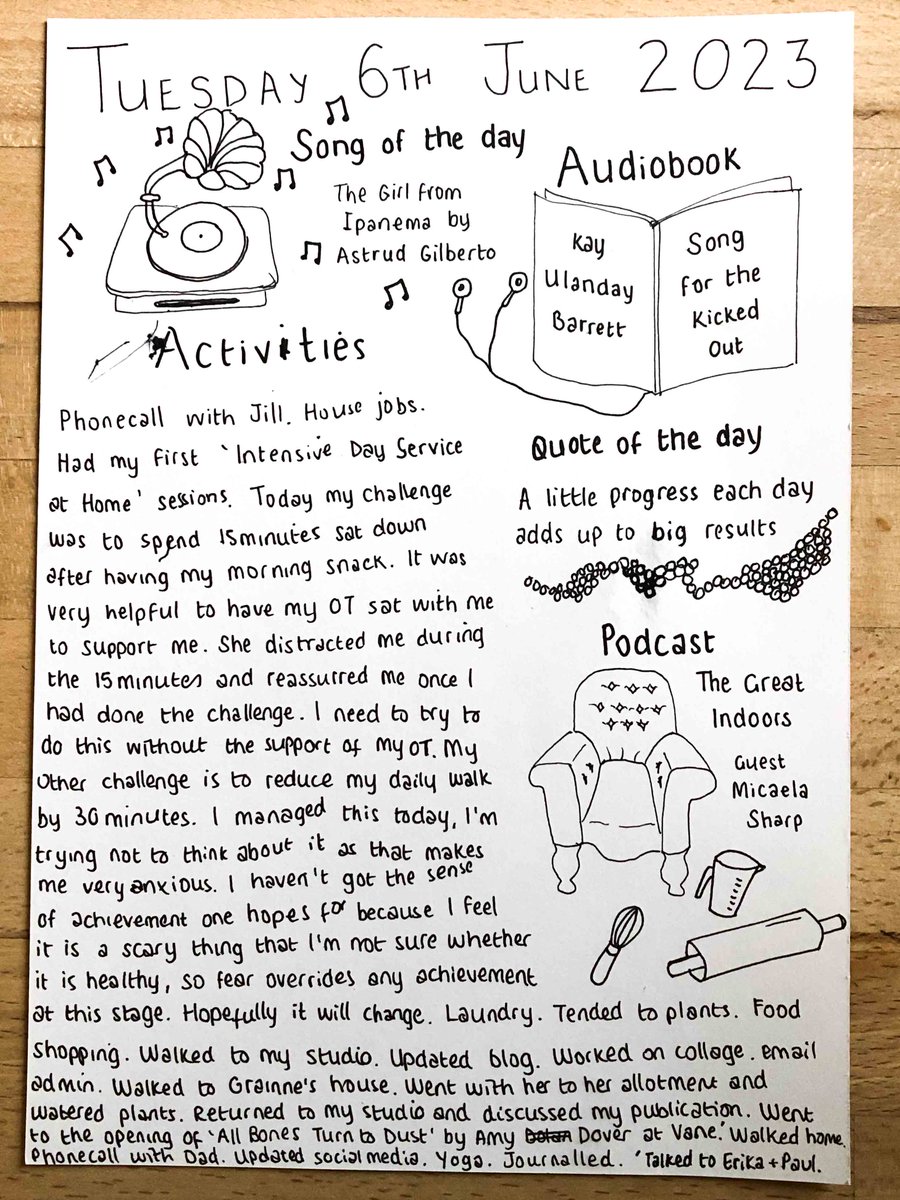 TUESDAY 6TH JUNE 2023
Song of the day
The Girl From
Ipanema by
Astrud Gilberto
Audiobook
Kay
Ulanday
Barrett
Song
for the
Kicked
Out
Activities
Phonecall with Jill. House jobs.
Had my first 'Intensive Day Service
at Home' sessions. Today my challenge
was to spend 15minutes sat down
after having my morning snack. It was
very helpful to have my OT sat with me
to support me. She distracted me during
the 15minutes and reassurred me once I
had done the challenge. I need to try to
do this without the support of my OT. My
other challenge is to reduce my daily walk
by 30 minutes. I managed this today, I'm
trying not to think about it as that makes
me very anxious. I haven't got the sense
of achievement one hopes for because I feel
it is a scary thing that I'm not sure whether
it is healthy, so fear overrides any achievement
at this stage. Hopefully it will change. Laundry. Tended to plants. Food
shopping. Walked to my studio. Updated blog. Worked on collage. email
admin. Walked to Grainne's house. Went with her to her allotment and
watered plants. Returned to my studio and discussed my publication. Went
to the opening of 'All Bones Turn to Dust' by Amy Dover at Vane.' Walked home.
Phonecall with Dad. Updated social media. Yoga. Journalled. 'Talked to Erika + Paul.
Quote of the day
A little progress each day
adds up to big results
Podcast
The Great
Indoors
Guest
Micaela
Sharp